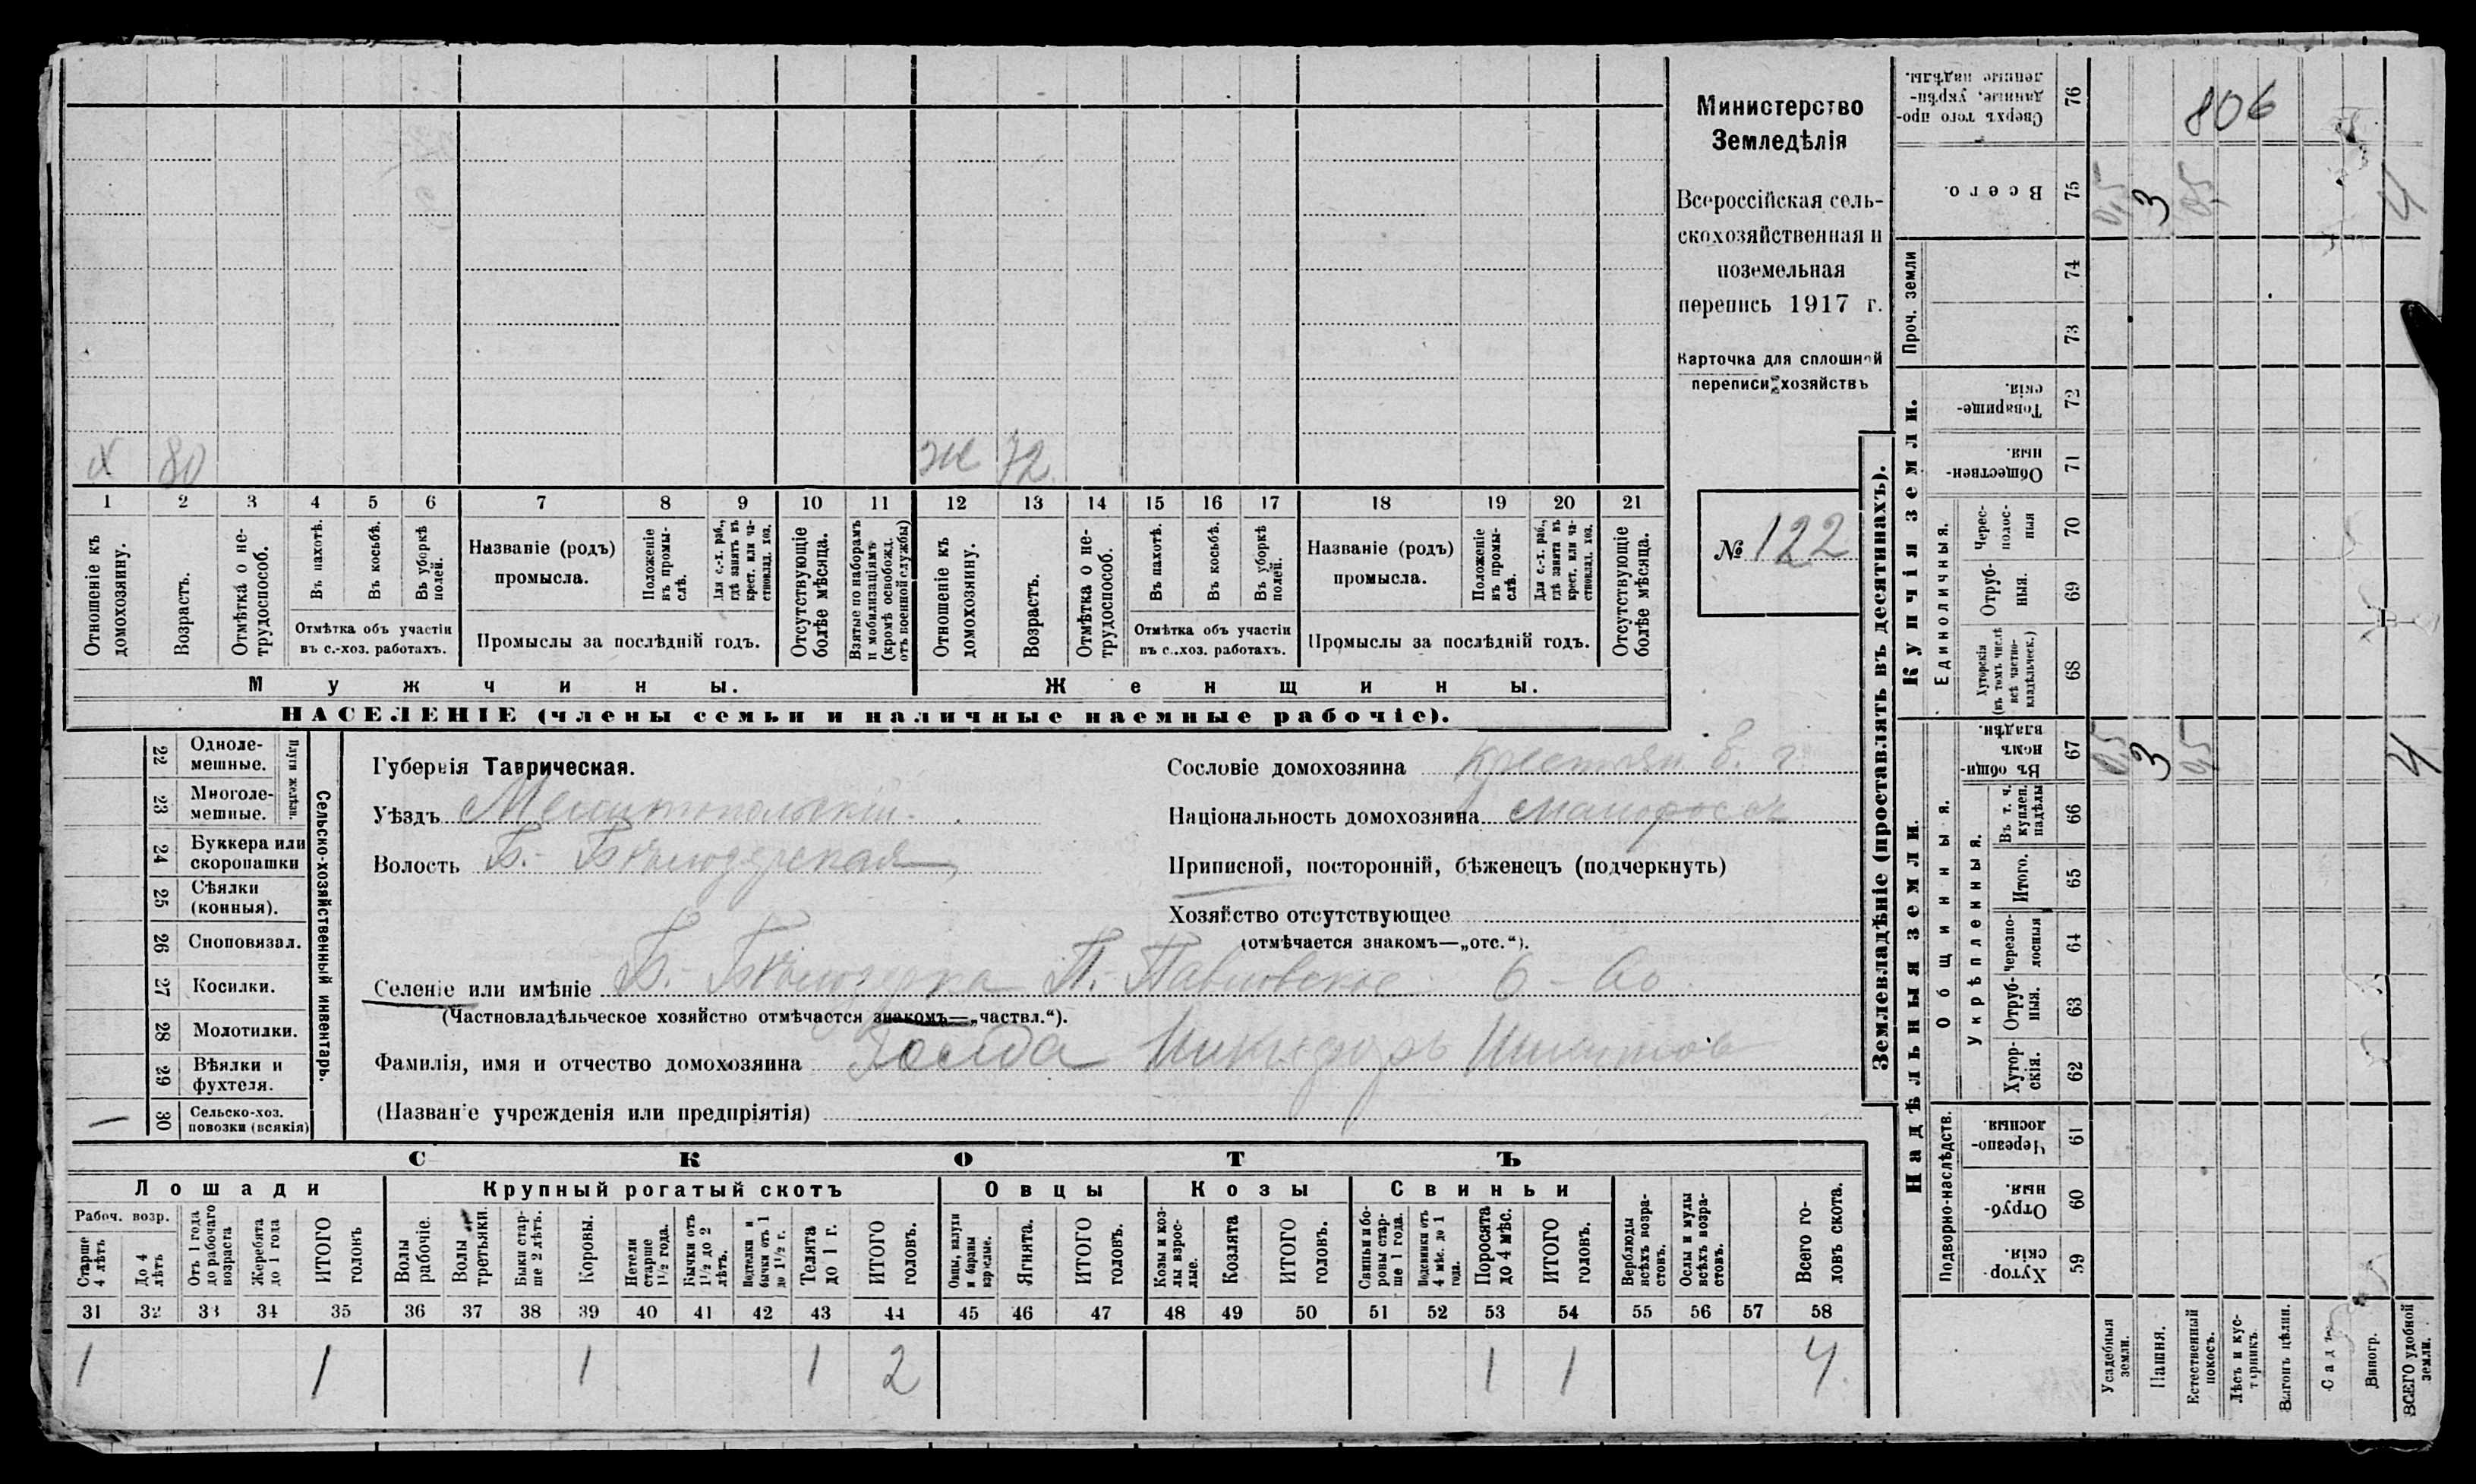 Министерство
Земледѣлія
Всероссійская сель-
скохозяйственная и
поземельная
перепись 1917 г.
Карточка для сплошной
переписи хозяйствъ
№ 122
х 80 ж 72
1 2 3 4 5 6 7 8 9 10 11 12 13 14 15 16 17 18 19 20 21
Отношеніе къ домохозяину.
Возрастъ.
Отмѣтка о не-трудоспособ.
Въ пахотѣ.
Въ косьбѣ.
Въ уборкѣ полей.
Отмѣтка объ участіи
въ с.-хоз. работахъ.
Названіе (родъ)
промысла.
Положеніе въ промы-слѣ.
Для с.-х. раб., гдѣ занятъ въ крест. или ча-стновлад. хоз.
Промыслы за послѣдній годъ.
Отсутствующіе болѣе мѣсяца.
Взятые по наборамъ и мобилизаціямъ (кромѣ освобожд. отъ военной службы)
Отношеніе къ домохозяину.
Возрастъ.
Отмѣтка о не-трудоспособ.
Въ пахотѣ.
Въ косьбѣ.
Въ уборкѣ полей.
Отмѣтка объ участіи
въ с.-хоз. работахъ.
Названіе (родъ)
промысла.
Положеніе въ промы-слѣ.
Для с.-х. раб., гдѣ занята въ крест. или ча-стновлад. хоз.
Промыслы за послѣдній годъ.
Отсутствующіе болѣе мѣсяца.
Мужчины. Женщины.
НАСЕЛЕНІЕ (члены семьи и наличные наемные рабочіе).
22 Одноле-мешные.
23 Многоле-мешные.
Плуги желѣзн.
24 Буккера или скоропашки
25 Сѣялки (конныя).
26 Сноповязал.
27 Косилки.
28 Молотилки.
29 Вѣялки и фухтеля.
30 Сельско-хоз. повозки (всякія)
Сельско-хозяйственный инвентарь.
Губернія Таврическая.
Уѣздъ Мелитопольскій.
Волость Б.- Бѣлозерская
Сословіе домохозяина крестьян. б. г
Національность домохозяина малоросс
Приписной, посторонній, бѣженецъ (подчеркнуть)
Хозяйство отсутствующее
(отмѣчается знакомъ—„отс.“).
Селеніе или имѣніе Б.- Бѣлозерка П.-Павловское 6 -
(Частновладѣльческое хозяйство отмѣчается знакомъ—„частвл.“).
Фамилія, имя и отчество домохозяина Никифоръ
(Названіе учрежденія или предпріятія)
СКОТЪ
Лошади Крупный рогатый скотъ Овцы Козы Свиньи
Рабоч. возр.
Старше 4 лѣтъ
До 4 лѣтъ
Отъ 1 года до рабочаго возраста
Жеребята до 1 года
ИТОГО головъ
Волы рабочіе.
Волы третьяки.
Быки стар-ше 2 лѣтъ.
Коровы.
Нетели старше 1½ года.
Бычки отъ 1½ до 2 лѣтъ.
Подтелки и бычки отъ 1 до 1½ г.
Телята до 1 г.
ИТОГО головъ.
Овцы, валухи и бараны взрослые.
Ягнята.
ИТОГО головъ.
Козы и коз-лы взрос-лые.
Козлята
ИТОГО головъ.
Свиньи и бо-ровы стар-ше 1 года.
Подсвинки отъ 4 мѣс. до 1 года.
Поросята до 4 мѣс.
ИТОГО головъ.
Верблюды всѣхъ возра-стовъ.
Ослы и мулы всѣхъ возра-стовъ.
Всего го-ловъ скота.
31 32 33 34 35 36 37 38 39 40 41 42 43 44 45 46 47 48 49 50 51 52 53 54 55 56 57 58
1 1 1 1 2 1 1 4
Землевладѣніе (проставлять въ десятинахъ).
Надѣльныя земли.
Купчія земли.
Проч. земли
Подворно-наслѣдств.
Общинныя.
Укрѣпленныя.
Единоличныя.
59 Хутор-скія.
60 Отруб-ныя.
61 Черезпо-лосныя.
62 Хутор-скія.
63 Отруб-ныя.
64 Черезпо-лосныя
65 Итого.
66 Въ т. ч. куплен. надѣлы
67 Въ общин-номъ владѣн.
68 Хуторскія (въ томъ числѣ всѣ частно-владѣльческ.)
69 Отруб-ныя.
70 Черес-полос-ныя
71 Обществен-ныя.
72 Товарище-скія.
73
74
75 Всего.
76 Сверхъ того про-данные, укрѣп-ленные надѣлы.
806
0,5 3 0,5 4
0,5 3 0,5 4
Усадебныя земли.
Пашня.
Естественный покосъ.
Лѣсъ и кус-тарникъ.
Выгонъ цѣлин.
Садъ
Виногр.
ВСЕГО удобной земли.